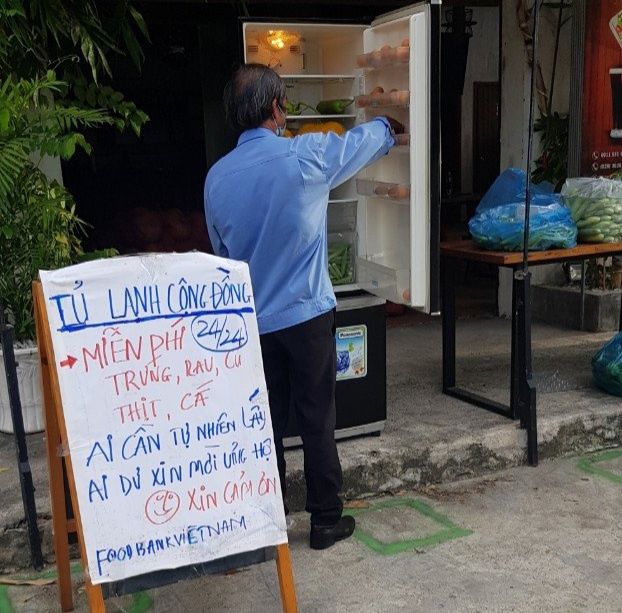 TỦ LẠNH CỘNG ĐỒNG
24/24
MIỄN PHÍ
TRỨNG, RAU, CỦ
THỊT, CÁ
AI CẦN TỰ NHIÊN LẤY
AI DƯ XIN MỜI ỦNG HỘ
XIN CẢM ƠN
FOODBANKVIETNAM
Panasonic